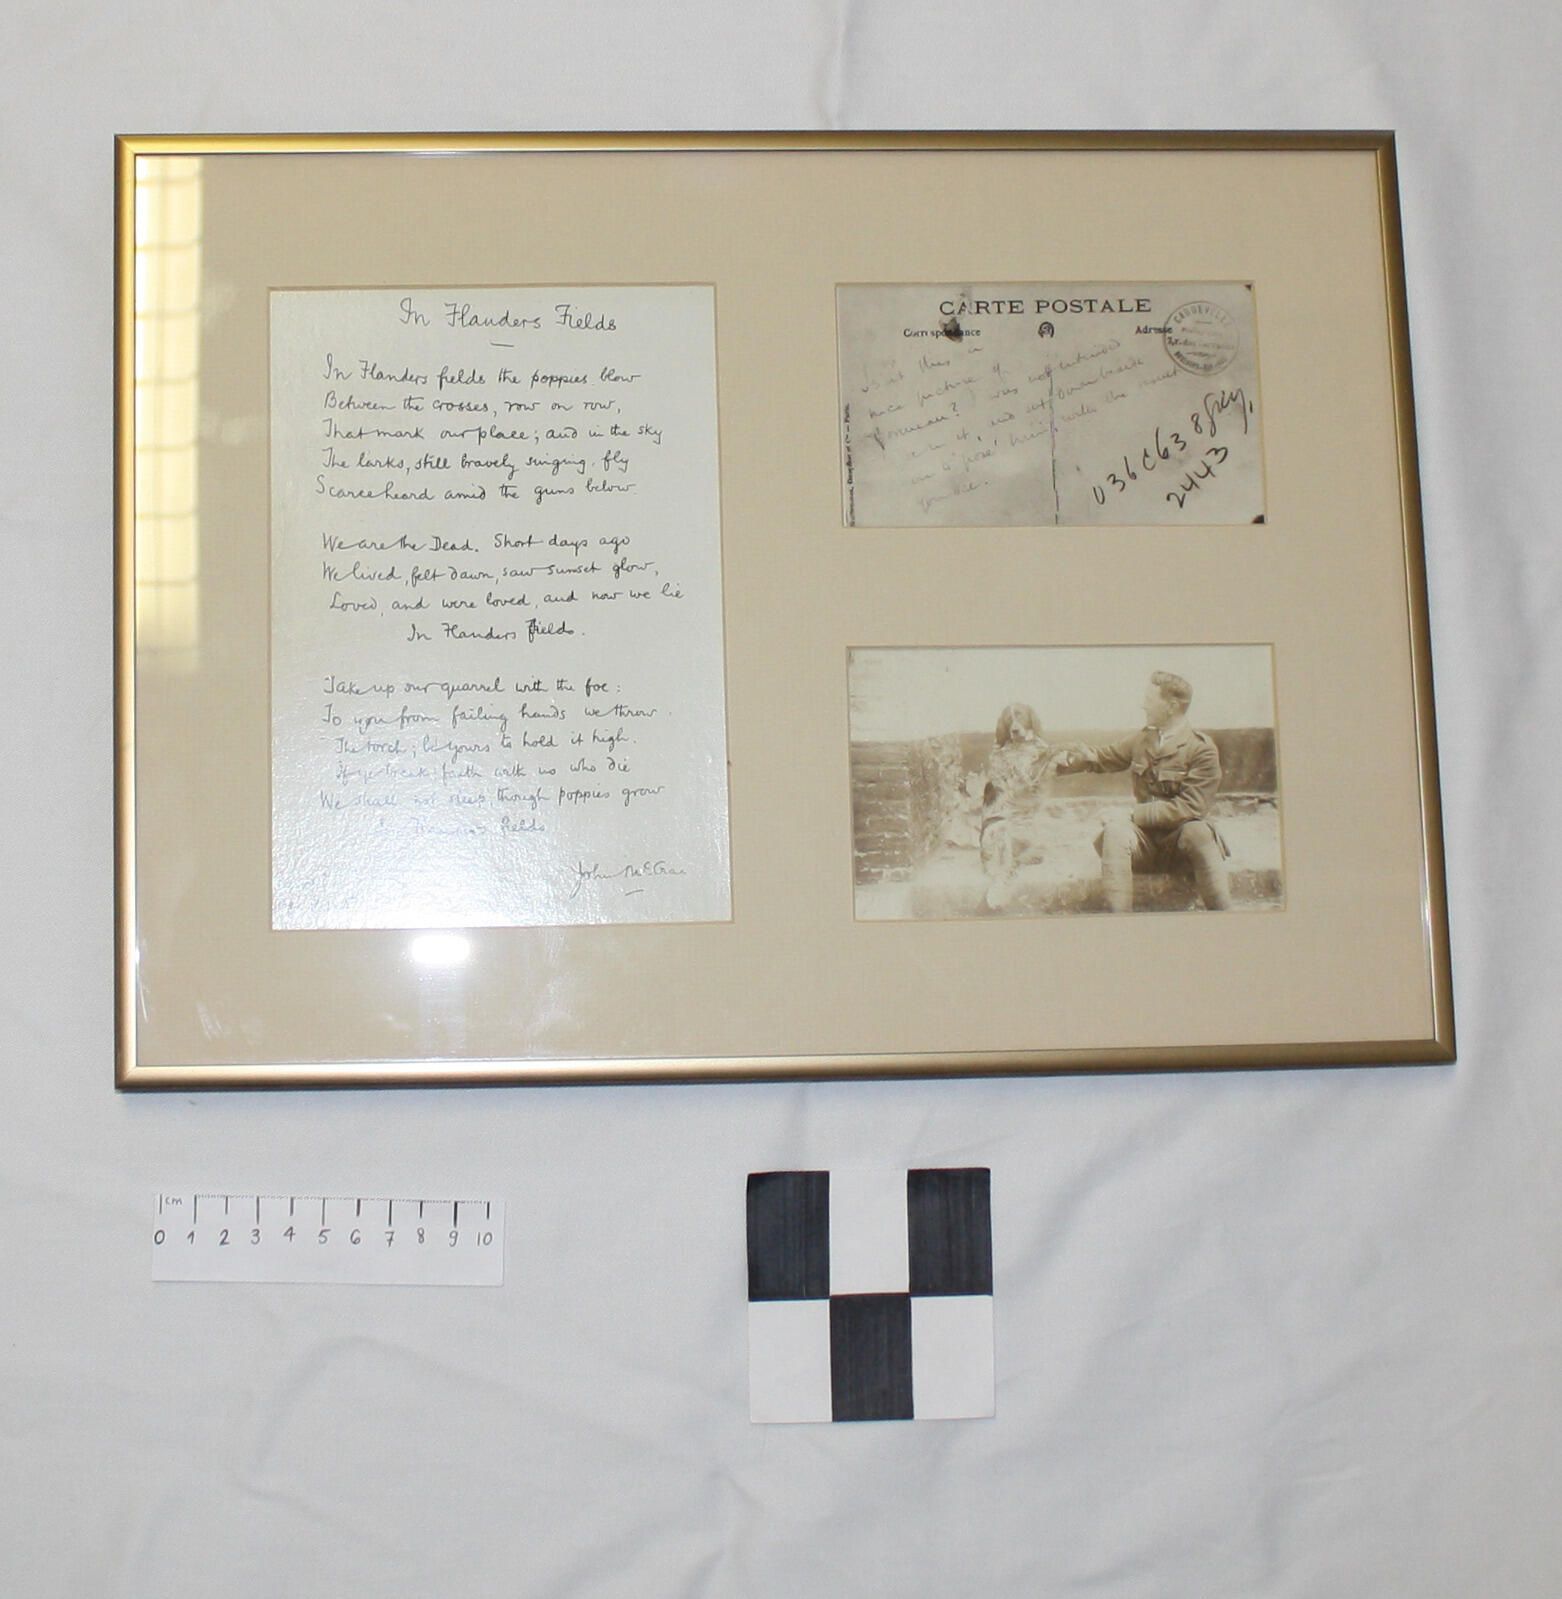 In Flanders Fields
In Flanders fields the poppies blow
Between the crosses, row on row,
That mark our place; and in the sky
The larks, still bravely singing, fly
Scarce heard amid the guns below.
We are the Dead. Short days ago
We lived, felt dawn, saw sunset glow,
Loved, and were loved, and now we lie
In Flanders fields.
Take up our quarrel with the foe:
To you from failing hands we throw
The torch; be yours to hold it high.
If ye break faith with us who die
We shall not sleep, though poppies grow
In Flanders fields
John McCrae
CARTE POSTALE
Correspondance
Adresse
CAUDEVELLE
Isn't this a
nice picture of
Bonneau? I was not intended
in it, and sat down beside
him
you die.
036C63 8 grey,
2443
cm
0 1 2 3 4 5 6 7 8 9 10